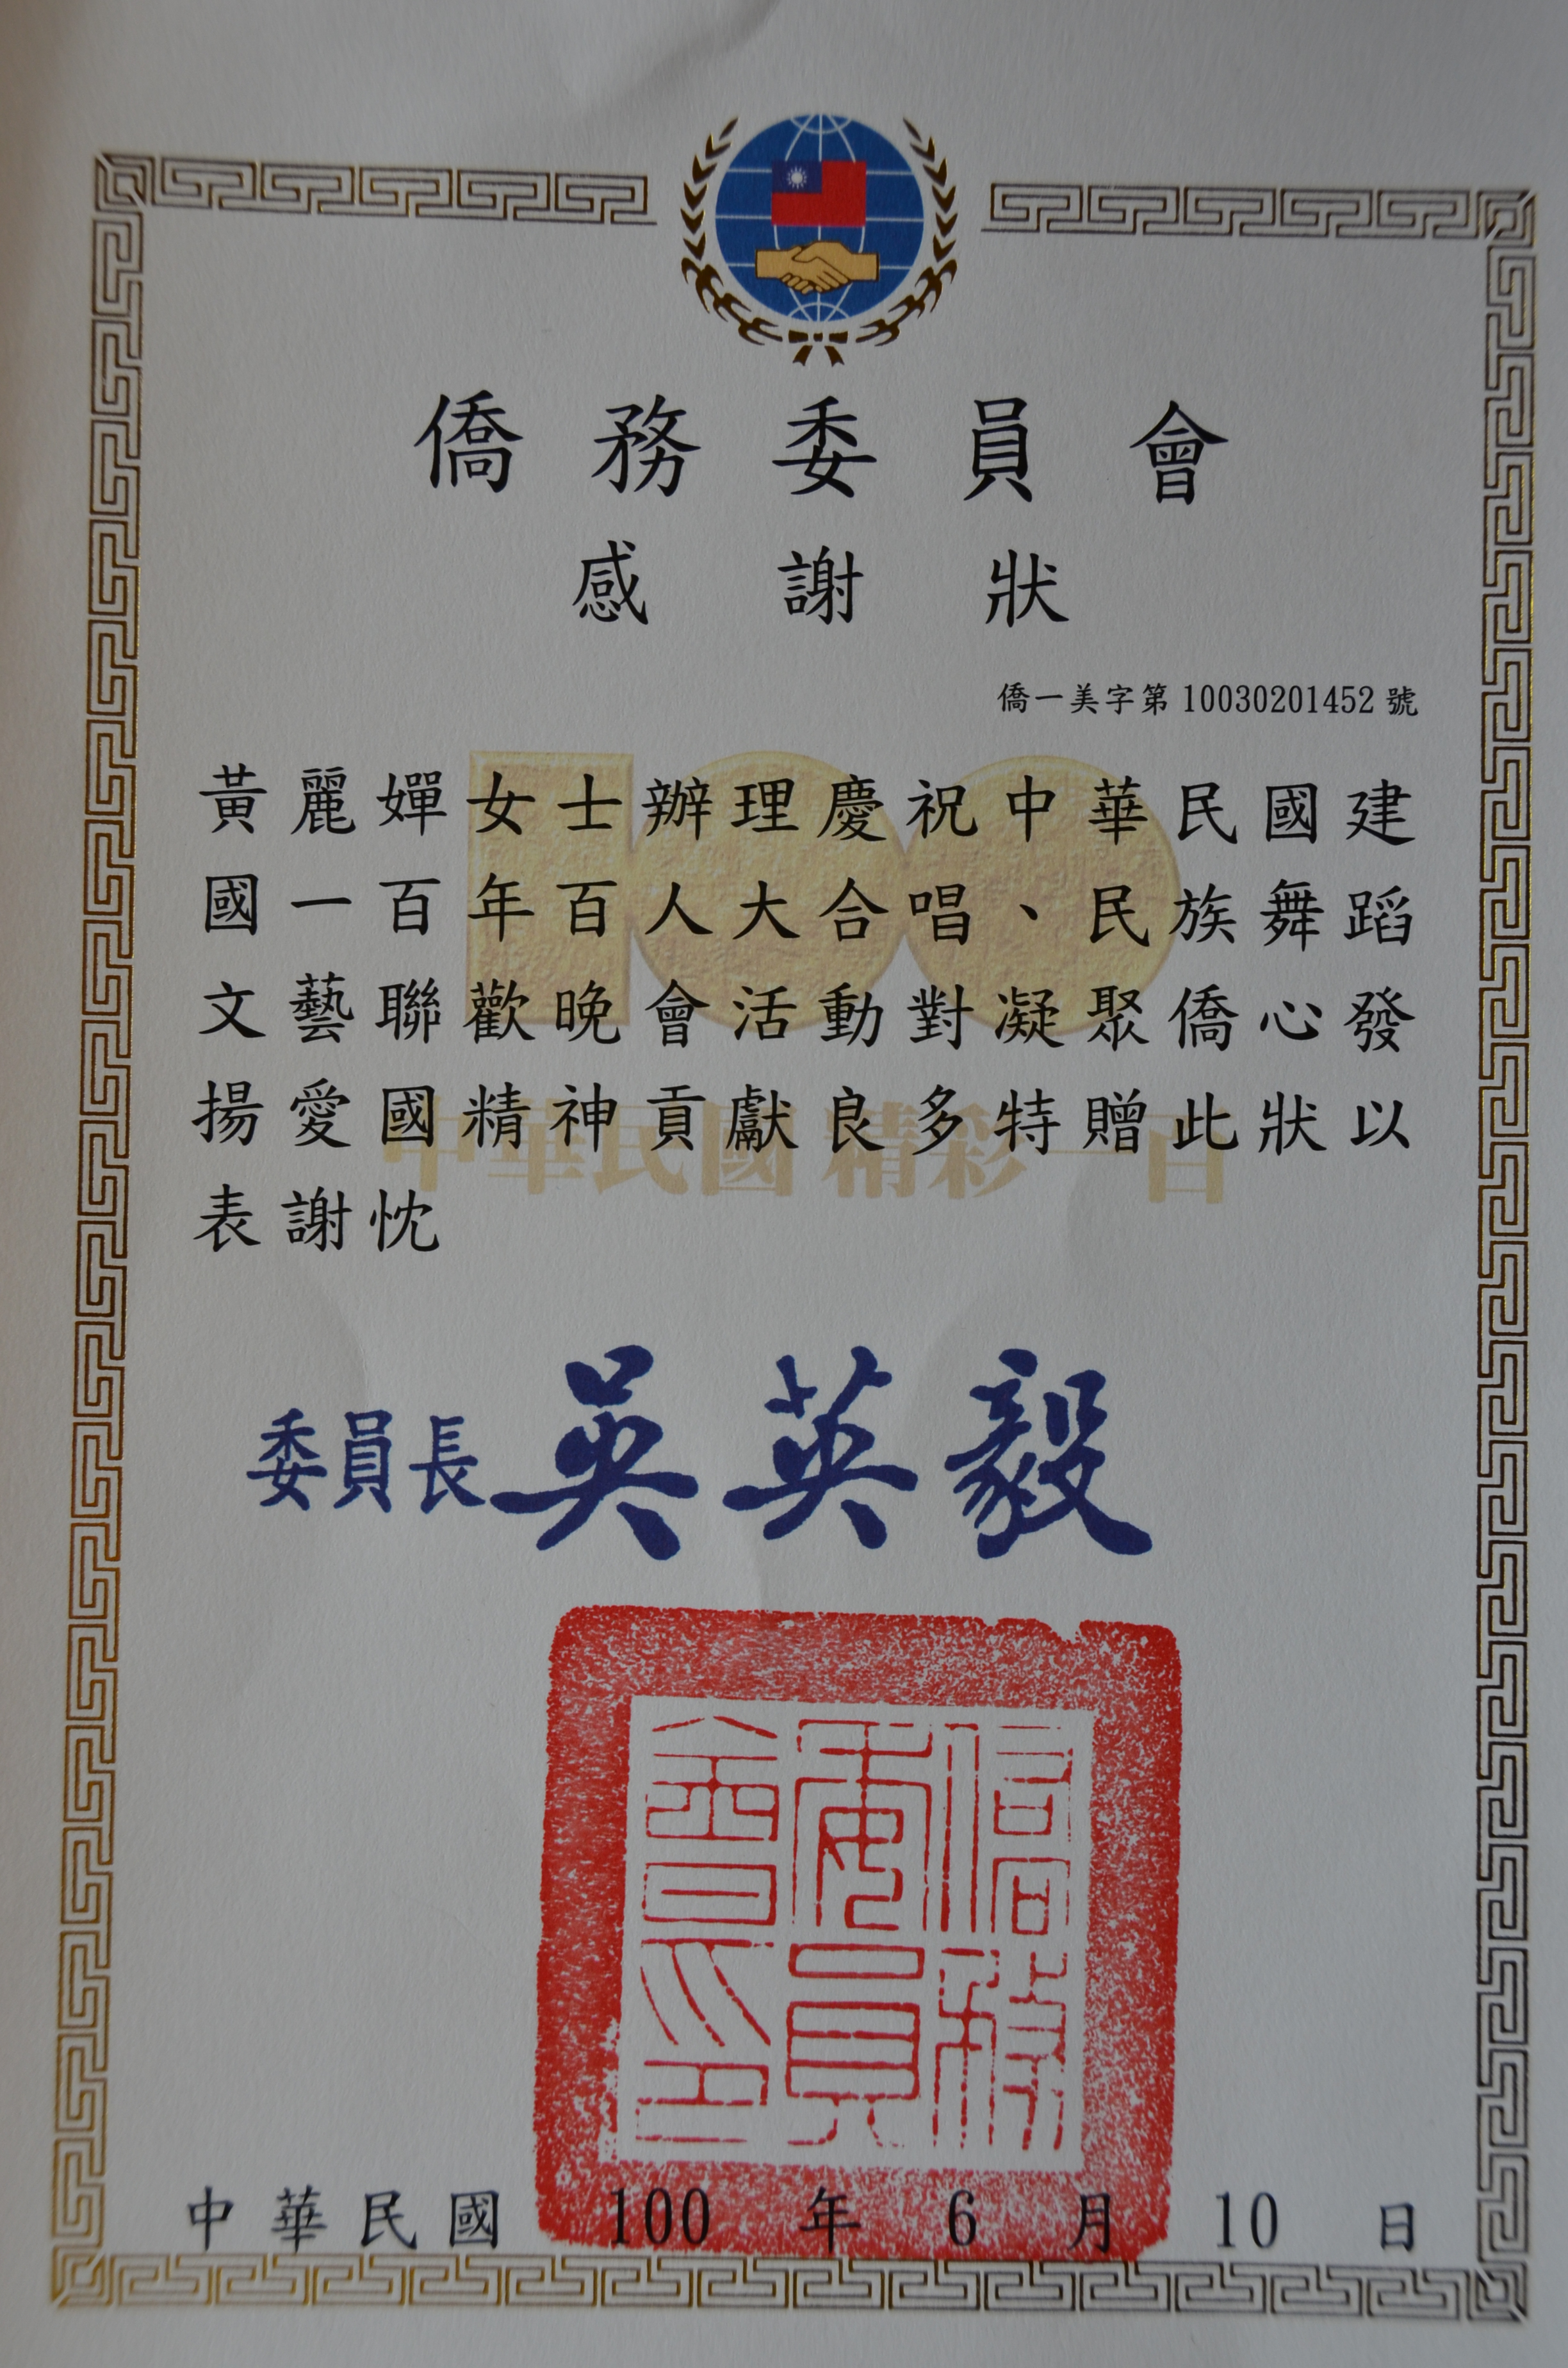 僑務委員會
感謝狀
僑一美字第10030201452號
黃麗嬋女士辦理慶祝中華民國建
國一百年百人大合唱、民族舞蹈
文藝聯歡晚會活動對凝聚僑心發
揚愛國精神貢獻良多特贈此狀以
中華民國 精彩一百
表謝忱
委員長吳英毅
僑務委員會印
中華民國 100 年 6 月 10 日